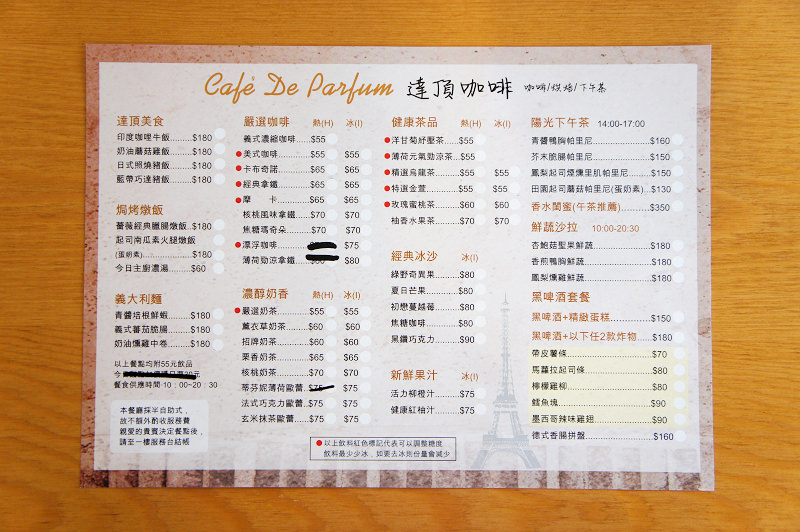 Café De Parfum 達頂咖啡 咖啡/烘焙/下午茶
達頂美食
印度咖哩牛飯.........$180
奶油蘑菇雞飯.........$180
日式照燒豬飯.........$180
藍帶巧達豬飯.........$180
焗烤燉飯
薔薇經典臘腸燉飯..$180
起司南瓜素火腿燉飯
(蛋奶素)...................$180
今日主廚濃湯.........$60
義大利麵
青醬培根鮮蝦.........$180
義式蕃茄脆腸.........$180
奶油燻雞中卷.........$180
以上餐點均附55元飲品
餐食供應時間·10：00~20：30
本餐廳採半自助式，
故不額外酌收服務費
親愛的貴賓決定餐點後，
請至一樓服務台結帳
嚴選咖啡 熱(H) 冰(I)
義式濃縮咖啡......$55
美式咖啡............$55 $55
卡布奇諾............$65 $65
經典拿鐵............$65 $65
摩 卡............$65 $65
核桃風味拿鐵......$70 $70
焦糖瑪奇朵.........$70 $70
漂浮咖啡............ $75
薄荷勁涼拿鐵...... $80
濃醇奶香 熱(H) 冰(I)
嚴選奶茶............$55 $55
薰衣草奶茶.........$60 $60
招牌奶茶............$60 $60
栗香奶茶............$65 $65
核桃奶茶............$70 $70
蒂芬妮薄荷歐蕾...$75 $75
法式巧克力歐蕾...$70 $70
玄米抹茶歐蕾......$70 $70
健康茶品 熱(H) 冰(I)
洋甘菊紓壓茶......$55
薄荷元氣勁涼茶...$55
精選烏龍茶.........$55 $55
特選金萱............$55 $55
玫瑰蜜桃茶.........$60 $60
柚香水果茶.........$70 $70
經典冰沙 冰(I)
綠野奇異果.........$80
夏日芒果............$80
初戀蔓越莓.........$80
焦糖咖啡............$80
黑鑽巧克力.........$90
新鮮果汁 冰(I)
活力柳橙汁.........$75
健康紅柚汁.........$75
以上飲料紅色標記代表可以調整糖度
飲料最少少冰，如要去冰則份量會減少
陽光下午茶 14:00-17:00
青醬鴨胸帕里尼.....................$160
芥末脆腸帕里尼.....................$150
鳳梨起司煙燻里肌帕里尼.........$150
田園起司蘑菇帕里尼(蛋奶素)...$130
香水閨蜜(午茶推薦)...............$350
鮮蔬沙拉 10:00-20:30
杏鮑菇聖果鮮蔬.....................$180
香煎鴨胸鮮蔬........................$180
鳳梨燻雞鮮蔬........................$180
黑啤酒套餐
黑啤酒+精緻蛋糕..................$150
黑啤酒+以下任2款炸物...........$180
帶皮薯條..............................$70
馬蘿拉起司條........................$80
檸檬雞柳..............................$80
鱈魚塊.................................$90
墨西哥辣味雞翅.....................$90
德式香腸拼盤........................$160